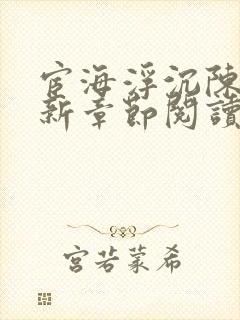 宦海浮沉陳
新章節閱讀
宮若蒙希